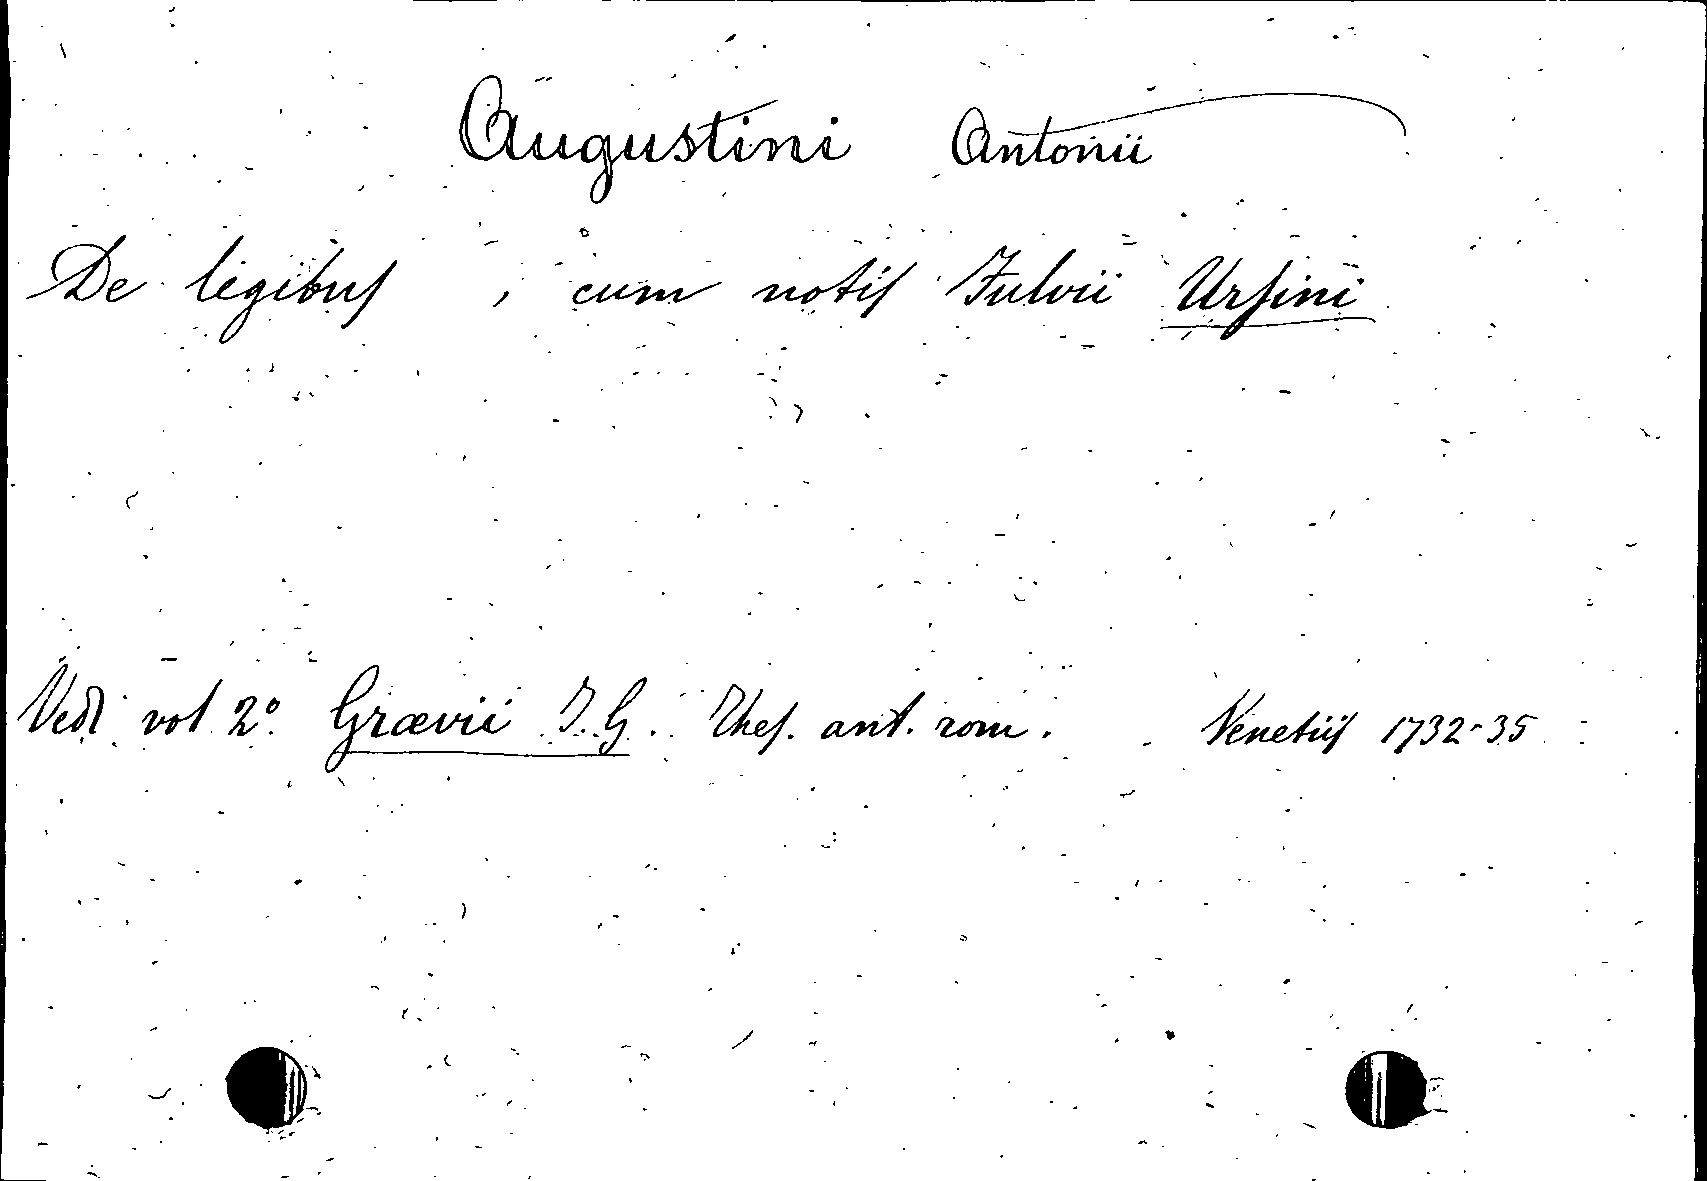 Augustini Antonii
De legibus, cum notis Fulvii Ursini
Vedi vol 2º Grævii J. G. Thes. ant. rom. Venetiis 1732-35